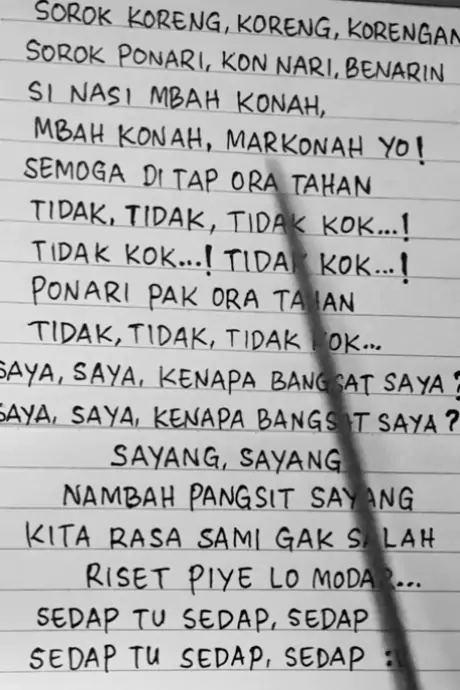 SOROK KORENG, KORENG, KORENGAN
SOROK PONARI, KON NARI, BENARIN
SI NASI MBAH KONAH,
MBAH KONAH, MARKONAH YO!
SEMOGA DI TAP ORA TAHAN
TIDAK, TIDAK, TIDAK KOK...!
TIDAK KOK...! TIDAK KOK...!
PONARI PAK ORA TAHAN
TIDAK, TIDAK, TIDAK KOK...
SAYA, SAYA, KENAPA BANGSAT SAYA?
SAYA, SAYA, KENAPA BANGSAT SAYA?
SAYANG, SAYANG
NAMBAH PANGSIT SAYANG
KITA RASA SAMI GAK SALAH
RISET PIYE LO MODAR...
SEDAP TU SEDAP, SEDAP
SEDAP TU SEDAP, SEDAP :